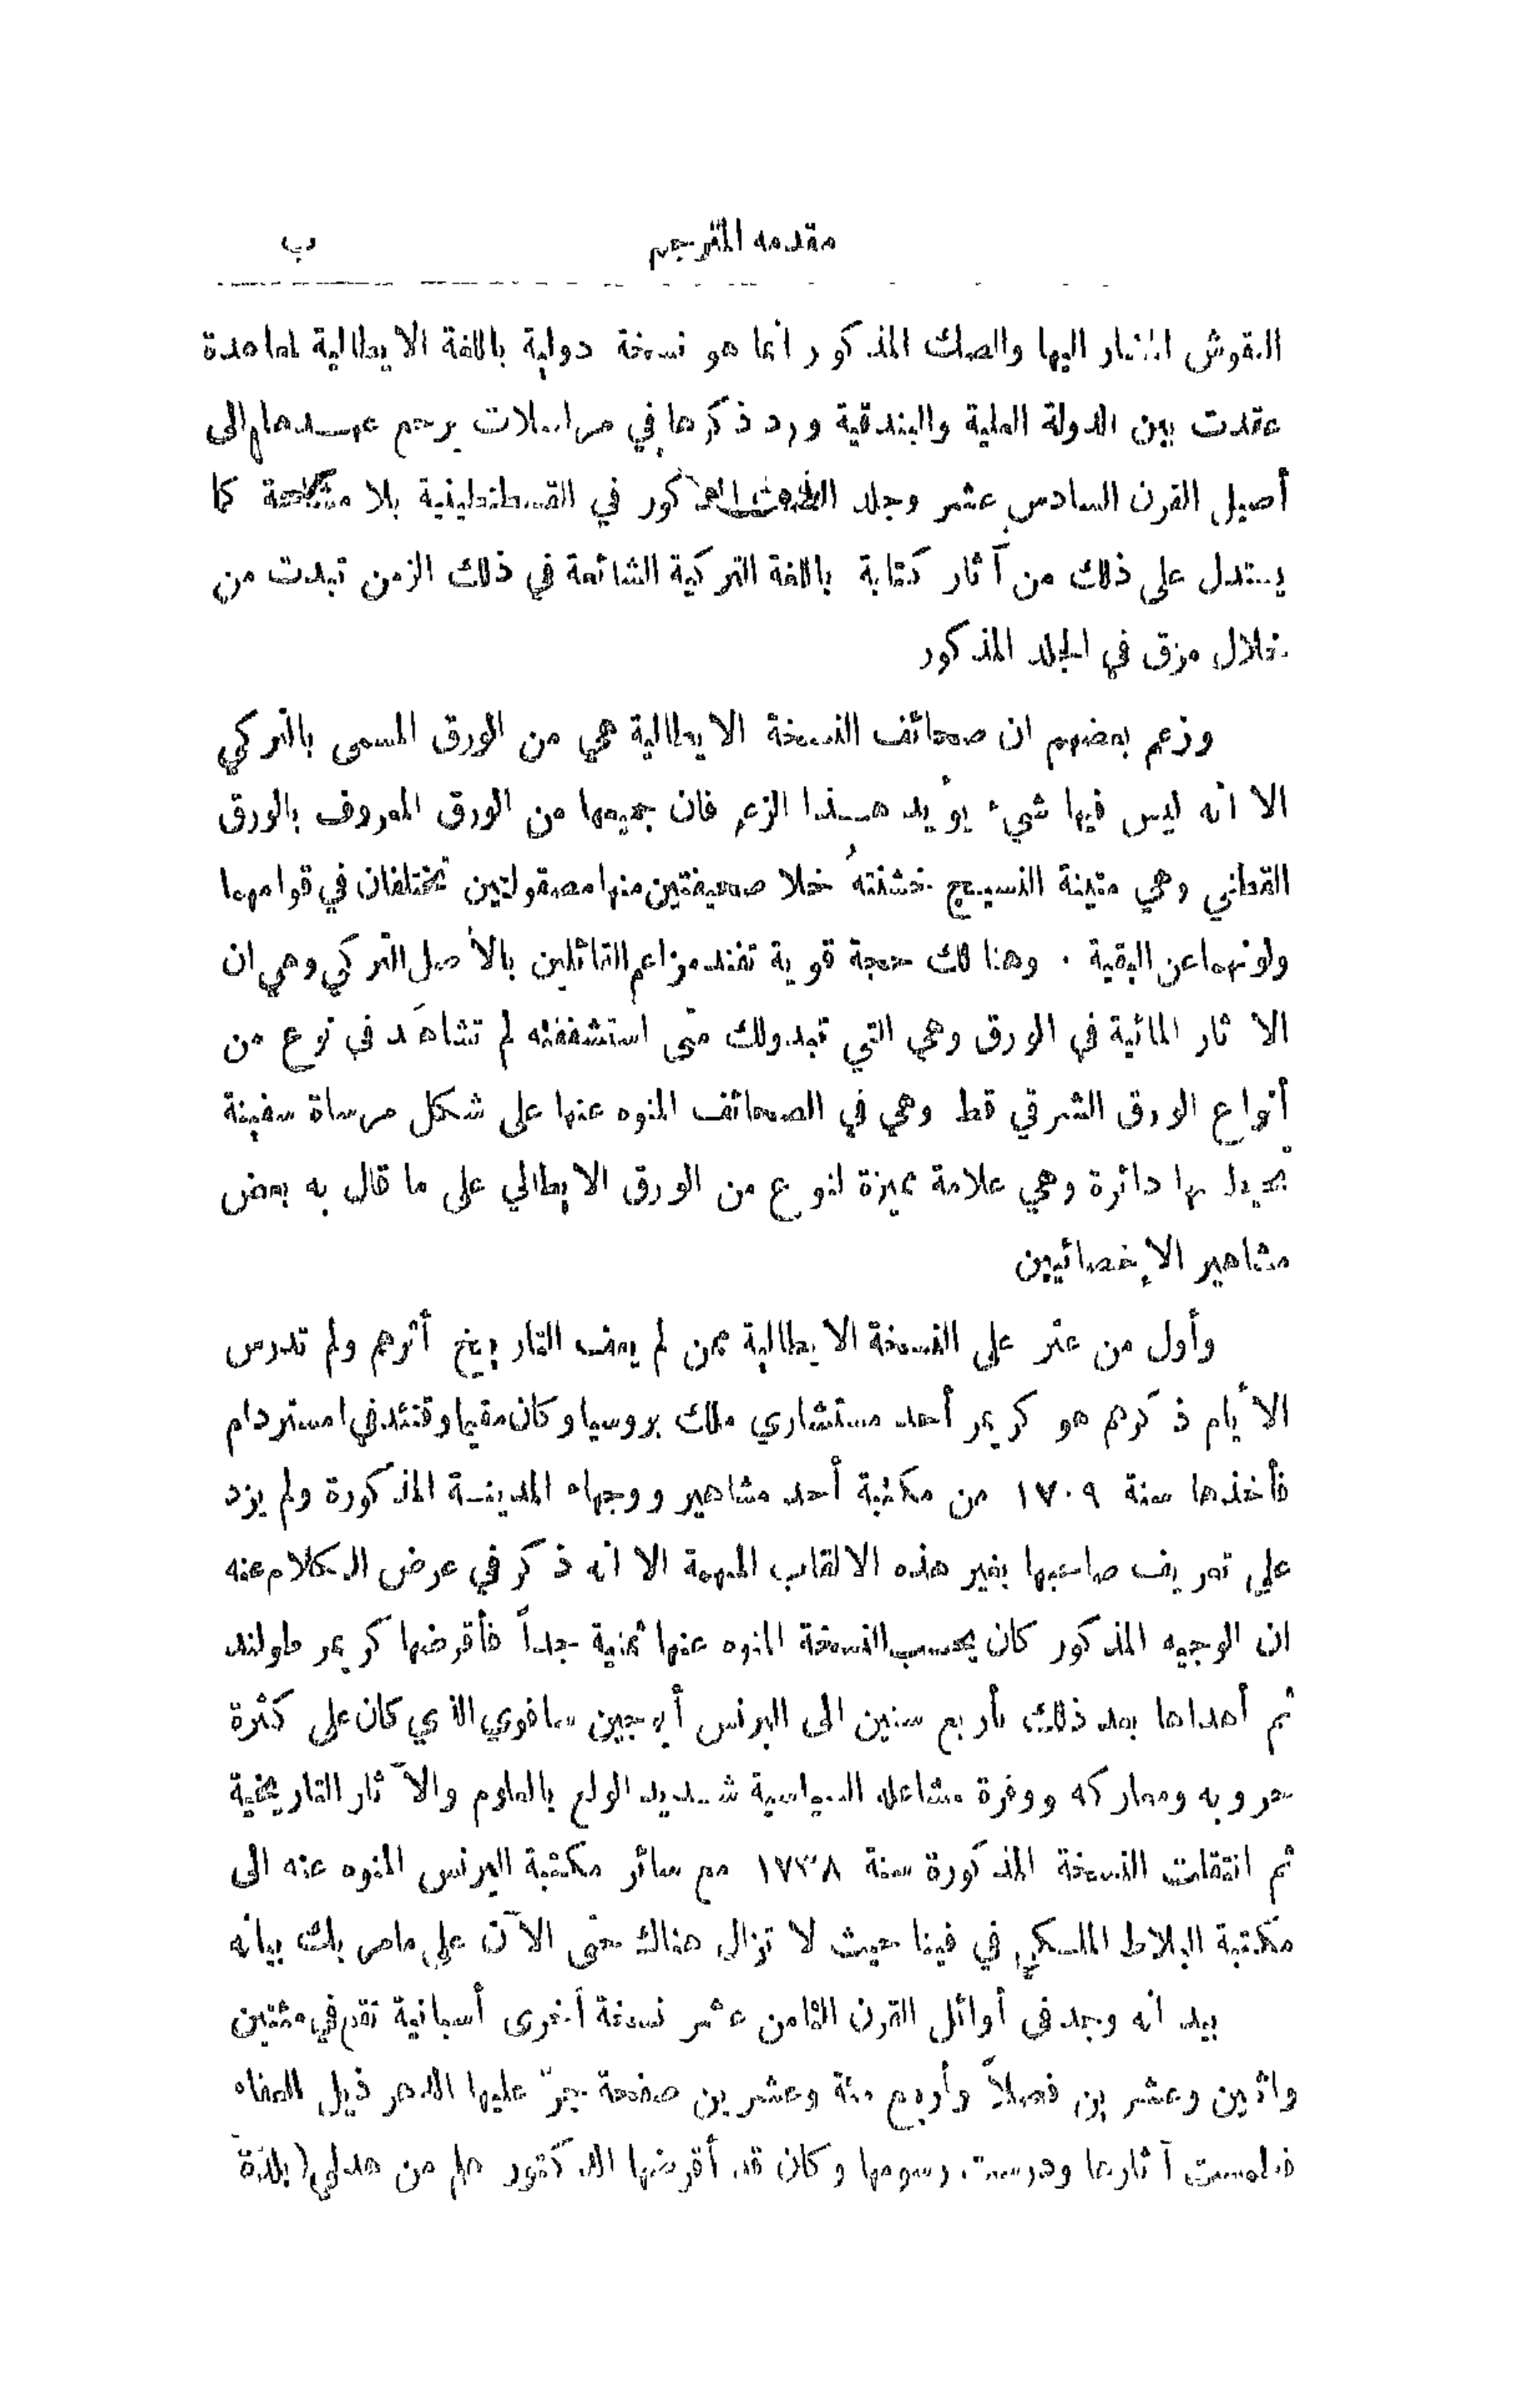 مقدمه المترجم ب
النقوش المشار اليها والصك المذكور انما هو نسخة دولية باللغة الايطالية لمعاهدة
عقدت بين الدولة العلية والبندقية ورد ذكرها في مراسلات يرجع عهدها الى
أصيل القرن السادس عشر وجلد المذكور في القسطنطينية بلا كما
يستدل على ذلك من آثار كتابة باللغة التركية الشائعة في ذلك الزمن تبدت من
خلال مزق في الجلد المذكور
وزعم بعضهم ان صحائف النسخة الايطالية هي من الورق المسمى بالتركي
الا انه ليس فيها شيء يؤيد هذا الزعم فان جميعها من الورق المعروف بالورق
القطني وهي متينة النسيج خشنتهُ خلا صحيفتين منها مصقولتين تختلفان في قوامهما
ولونهما عن البقية . وهنالك حجة قوية تفند مزاعم القائلين بالأصل التركي وهي ان
الاثار المائية في الورق وهي التي تبدولك متى استشففته لم تشاهَد في نوع من
أنواع الورق الشرقي قط وهي في الصحائف المنوه عنها على شكل مرساة سفينة
تحيط بها دائرة وهي علامة مميزة لنوع من الورق الايطالي على ما قال به بعض
مشاهير الإخصائيين
وأول من عثر على النسخة الايطالية ممن لم يعف التاريخ أثرهم ولم تدرس
الأيام ذكرهم هو كريمر أحد مستشاري ملك بروسيا وكان مقيما وقتئذ في امستردام
فأخذها سنة ١٧٠٩ من مكتبة أحد مشاهير ووجهاء المدينة المذكورة ولم يزد
على تعريف صاحبها بغير هذه الالقاب المبهمة الا انه ذكر في عرض الكلام عنه
ان الوجيه المذكور كان يحسب النسخة المنوه عنها ثمنية جداً فأقرضها كريمر طولند
ثم أهداها بعد ذلك بأربع سنين الى البرنس أيوجين سافوي الذي كان على كثرة
حروبه ومعاركه ووفرة مشاغله السياسية شديد الولع بالعلوم والآثار التاريخية
ثم انتقلت النسخة المذكورة سنة ١٧٣٨ مع سائر مكتبة البرنس المنوه عنه الى
مكتبة البلاط الملكي في فينا حيث لا تزال هناك حتى الآن على مامر بك بيانه
بيد انه وجد في أوائل القرن الثامن عشر نسخة أخرى أسبانية تقع في مئتين
واثنين وعشرين فصلاً وأربع مئة وعشرين صفحة جرّ عليها الدهر ذيل العفاء
فطمست آثارها ودرست رسومها وكان قد أقرضها الدكتور هلم من هدلي ( بلدة